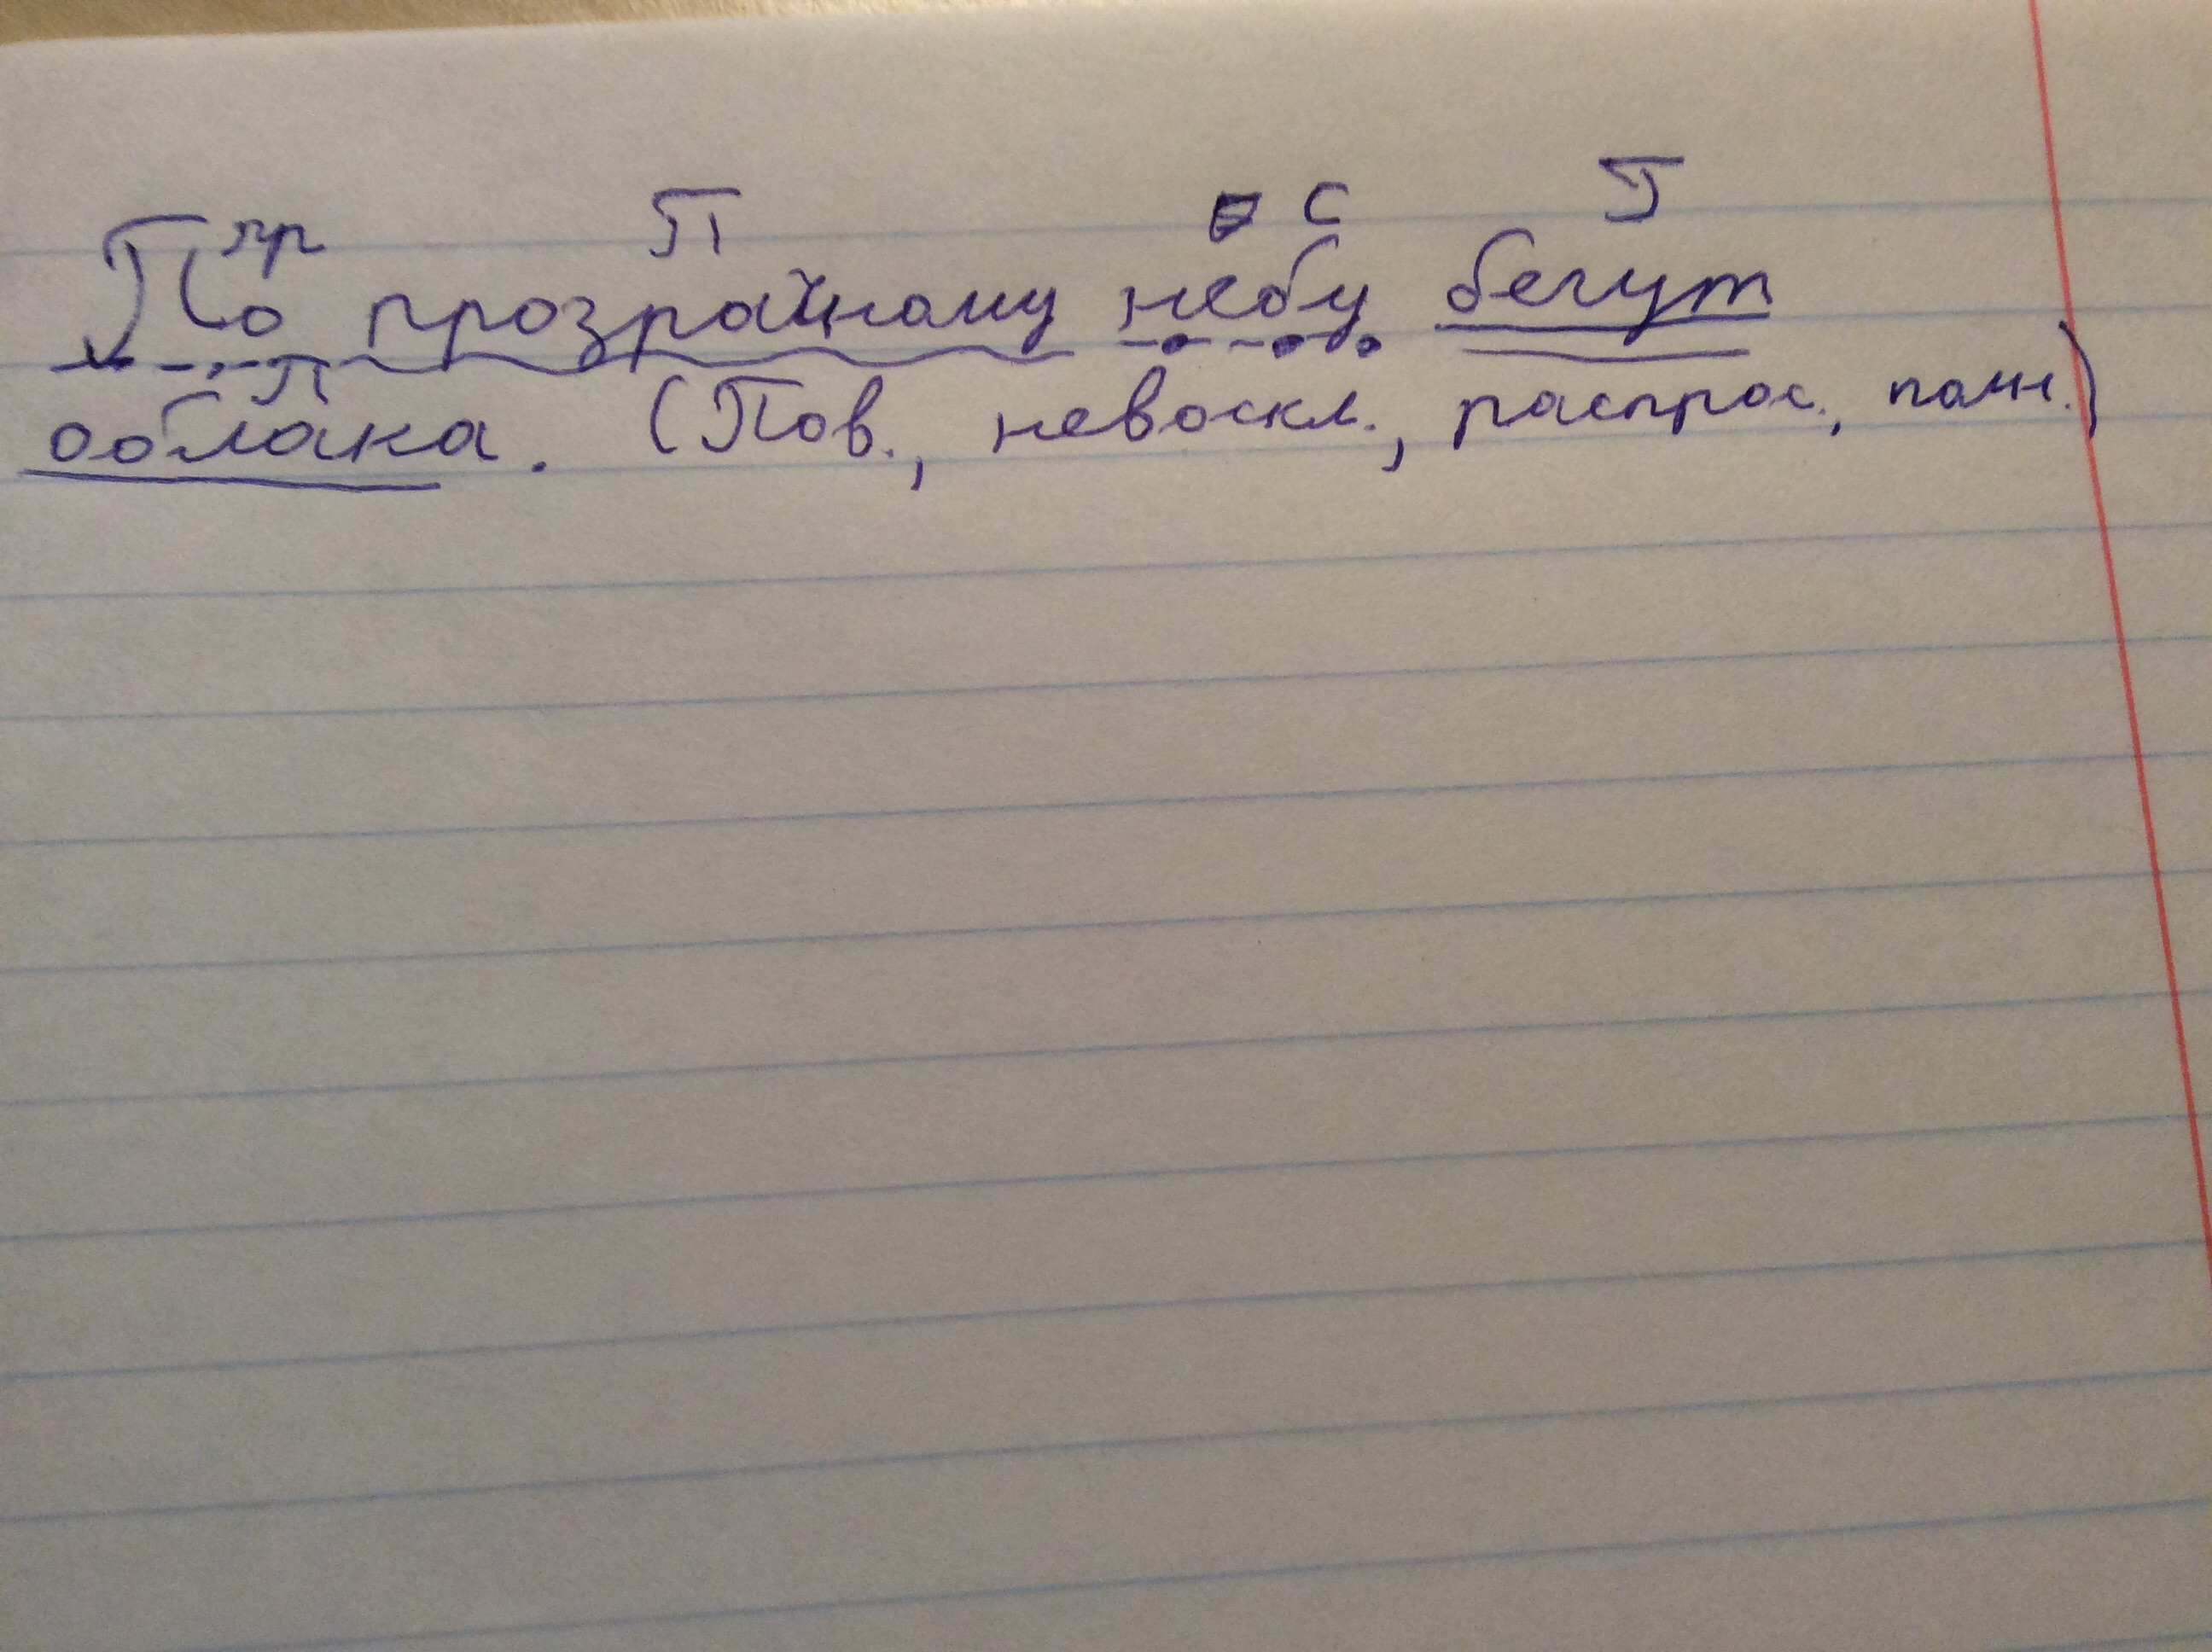 пр П с Г
По прозрачному небу бегут
П
облака. (Пов., невоскл., распрос., полн.)